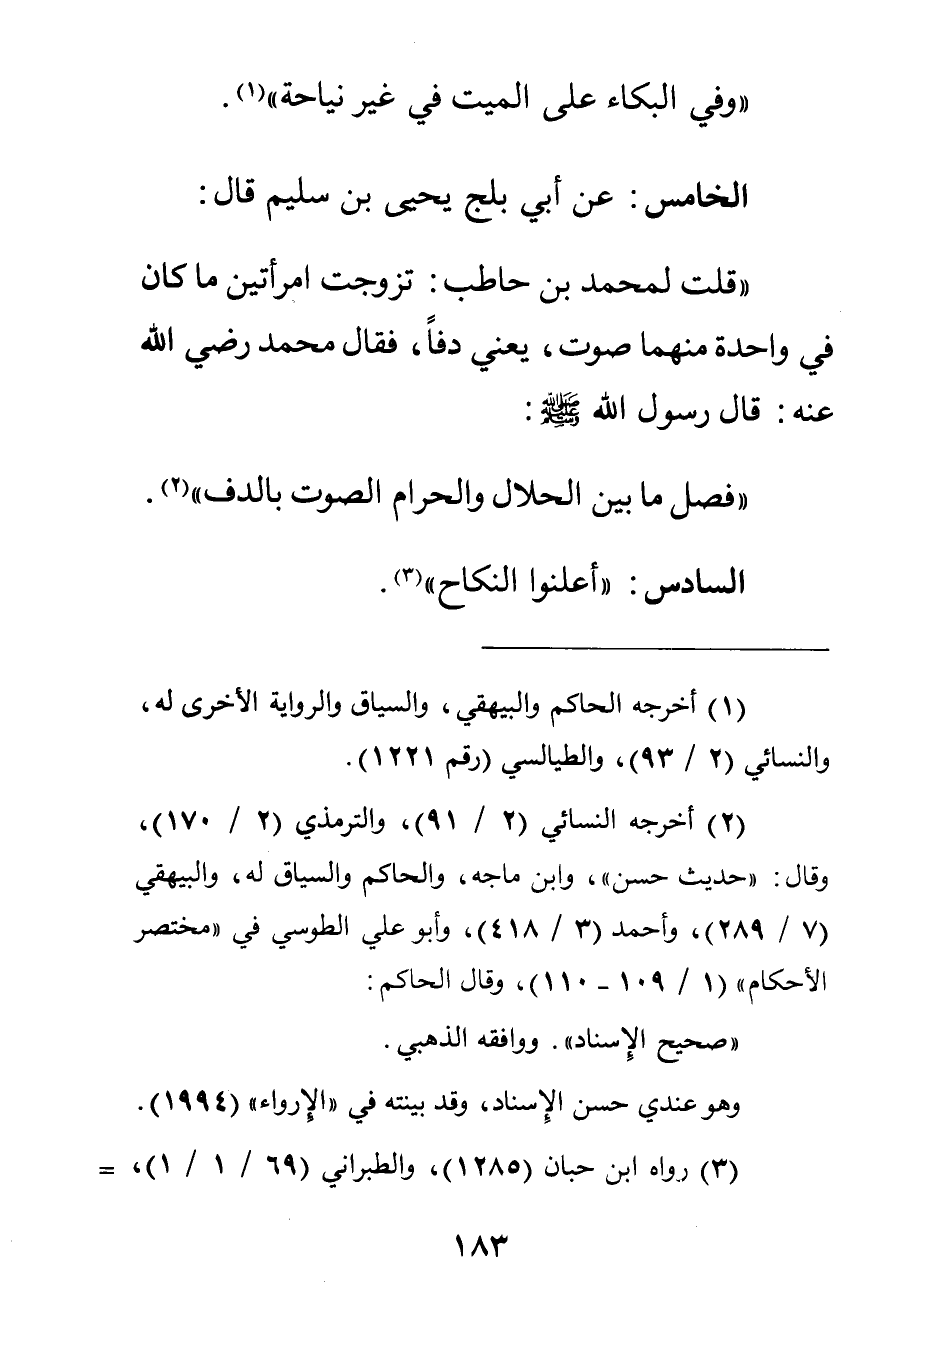 «وفي البكاء على الميت في غير نياحة»(١).
الخامس: عن أبي بلج يحيى بن سليم قال:
«قلت لمحمد بن حاطب: تزوجت امرأتين ما كان
في واحدة منهما صوت، يعني دفاً، فقال محمد رضي الله
عنه: قال رسول الله ﷺ:
«فصل ما بين الحلال والحرام الصوت بالدف»(٢).
السادس: «أعلنوا النكاح»(٣).
(١) أخرجه الحاكم والبيهقي، والسياق والرواية الأخرى له،
والنسائي (٢ / ٩٣)، والطيالسي (رقم ١٢٢١).
(٢) أخرجه النسائي (٢ / ٩١)، والترمذي (٢ / ١٧٠)،
وقال: «حديث حسن»، وابن ماجه، والحاكم والسياق له، والبيهقي
(٧ / ٢٨٩)، وأحمد (٣ / ٤١٨)، وأبو علي الطوسي في «مختصر
الأحكام» (١ / ١٠٩ - ١١٠)، وقال الحاكم:
«صحيح الإسناد». ووافقه الذهبي.
وهو عندي حسن الإسناد، وقد بينته في «الإرواء» (١٩٩٤).
(٣) رواه ابن حبان (١٢٨٥)، والطبراني (٦٩ / ١ / ١)، =
١٨٣